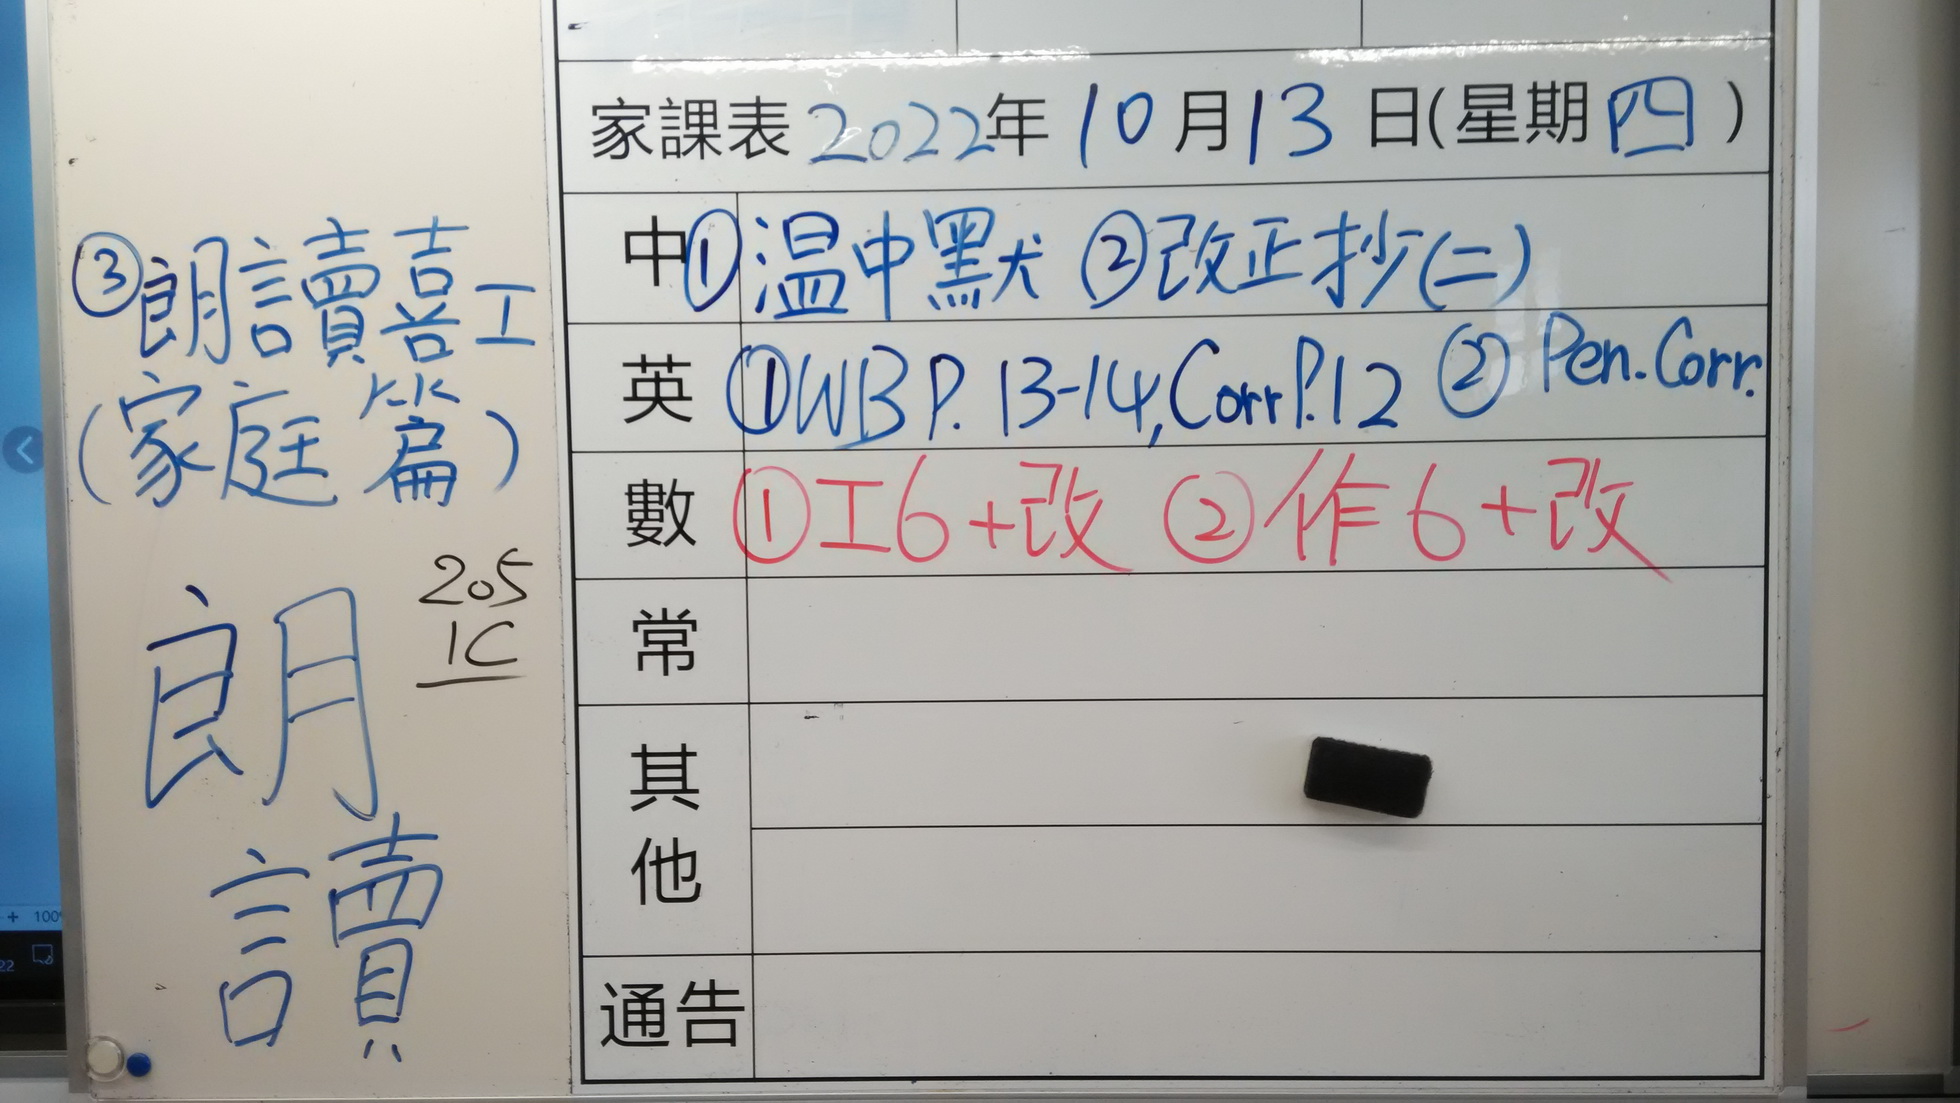 家課表 2022年 10月13日(星期四)
中 ①温中默 ②改正抄(二)
③朗讀喜工
(家庭篇)
英 ①WB P. 13-14, Corr P.12 ② Pen. Corr.
數 ①工6+改 ②作6+改
常
其他
通告
205
1C
朗
讀
+ 100%
22